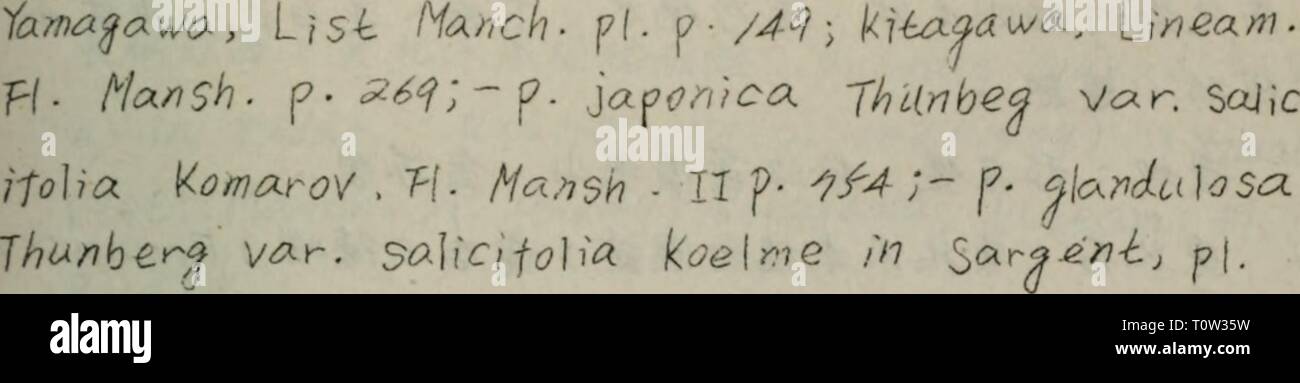 Yamagawa, List Manch. pl. p. 149; Kitagawa. Lineam.
Fl. Mansh. p. 269;- p. japonica Thunbeg var. salic
ifolia Komarov. Fl. Mansh. II p. 754;- p. glandulosa
Thunberg var. salicifolia Koelme in Sargent, pl.
alamy
a
a
alamy
a
a
a
a
a
a
alamy
Image ID: T0W35W
www.alamy.com